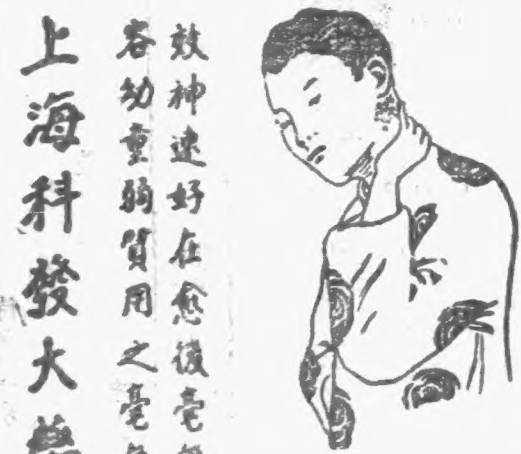 效神速好在愈後毫
容幼童弱質用之毫
上海科發大藥